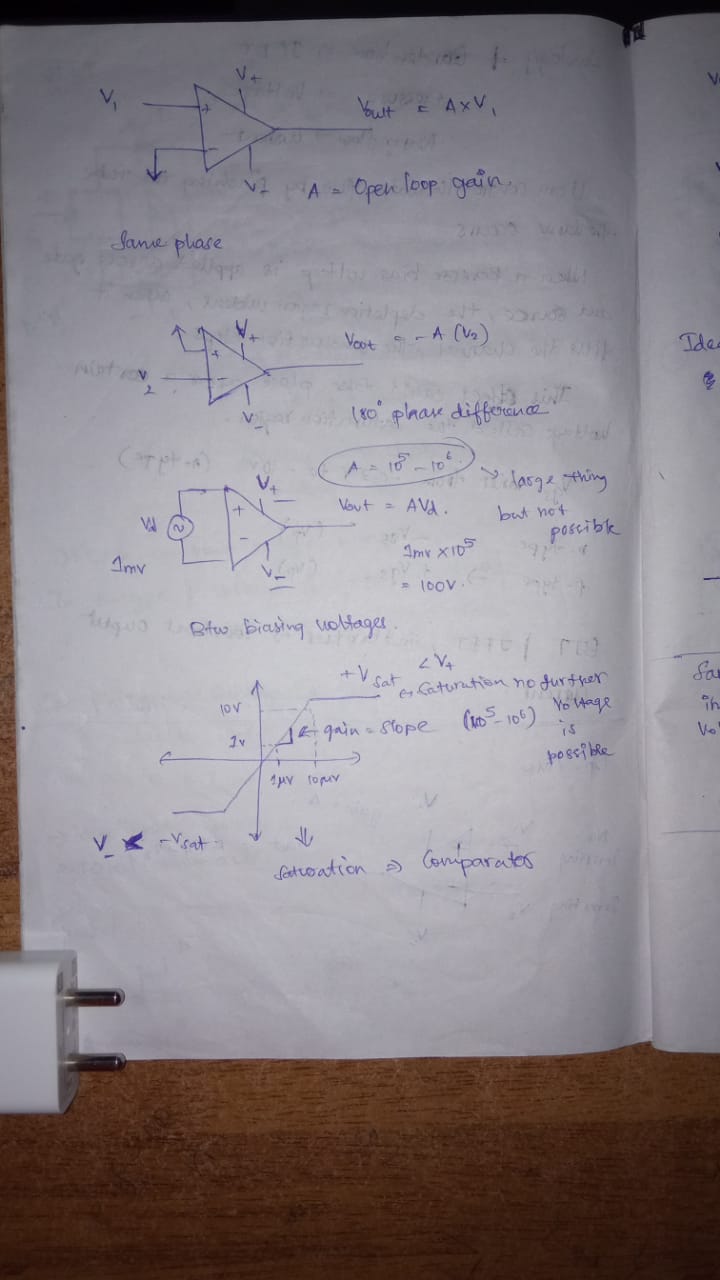 V+
V1
+
-
Vout = A x V1
V-
A = Open loop gain
Same phase
V+
+
-
Vout = - A (V2)
V2
V-
180° phase difference
A = 10^5 - 10^6
large thing
but not
possible
V+
Vd
+
-
Vout = AVd.
1mv
V-
1mv x 10^5
= 100V.
Btw biasing voltages.
+Vsat < V+
Saturation no further
voltage
is
possible
10V
1v
gain = slope (10^5 - 10^6)
1μv 10μv
V- < -Vsat
Saturation ⇒ Comparator
Idea
Sa
in
Vo